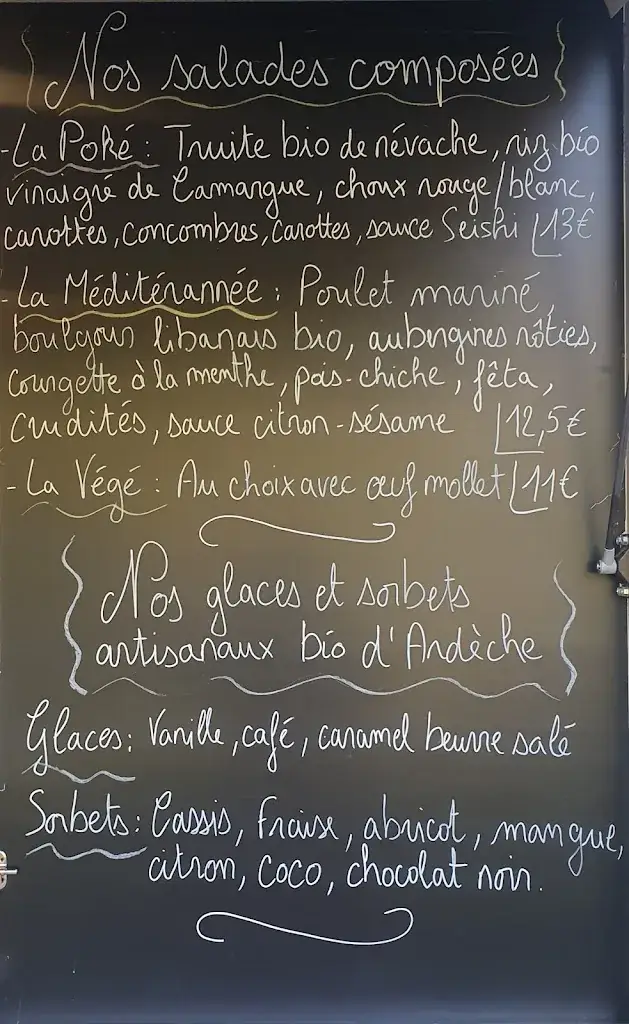 Nos salades composées
- La Poké : Truite bio de névache, riz bio
vinaigré de Camargue, choux rouge/blanc,
carottes, concombres, carottes, sauce Seishi 13€
- La Méditérannée : Poulet mariné,
boulgour libanais bio, aubergines rôties,
courgette à la menthe, pois-chiche, fêta,
crudités, sauce citron-sésame 12,5€
- La Végé : Au choix avec œuf mollet 11€
Nos glaces et sorbets
artisanaux bio d'Ardèche
Glaces : Vanille, café, caramel beurre salé
Sorbets : Cassis, Fraise, abricot, mangue,
citron, coco, chocolat noir.